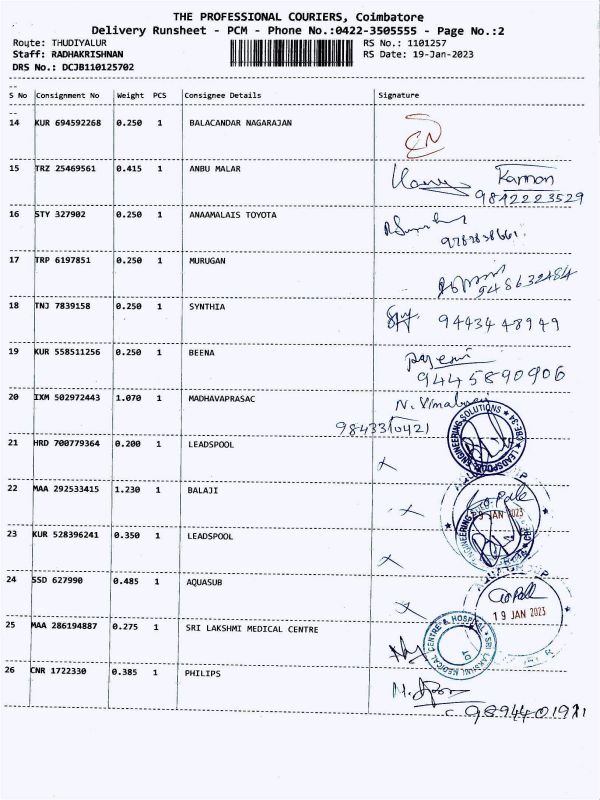 THE PROFESSIONAL COURIERS, Coimbatore
Delivery Runsheet - PCM - Phone No.:0422-3505555 - Page No.:2
Route: THUDIYALUR RS No.: 1101257
Staff: RADHAKRISHNAN RS Date: 19-Jan-2023
DRS No.: DCJB110125702
S No Consignment No Weight PCS Consignee Details Signature
14 KUR 694592268 0.250 1 BALACANDAR NAGARAJAN
15 TRZ 25469561 0.415 1 ANBU MALAR
9842223529
16 STY 327902 0.250 1 ANAAMALAIS TOYOTA
17 TRP 6197851 0.250 1 MURUGAN
9486322484
18 TNJ 7839158 0.250 1 SYNTHIA 9443448949
19 KUR 558511256 0.250 1 BEENA
9445890906
20 IXM 502972443 1.070 1 MADHAVAPRASAC
9843310421
LEADSPOOL ENGINEERING SOLUTIONS ★ CBE-34 ★
21 HRD 700779364 0.200 1 LEADSPOOL
22 MAA 292533415 1.230 1 BALAJI
19 JAN 2023
23 KUR 528396241 0.350 1 LEADSPOOL
24 SSD 627990 0.485 1 AQUASUB
19 JAN 2023
25 MAA 286194887 0.275 1 SRI LAKSHMI MEDICAL CENTRE
SRI LAKSHMI MEDICAL CENTRE & HOSPITAL
26 CNR 1722330 0.385 1 PHILIPS